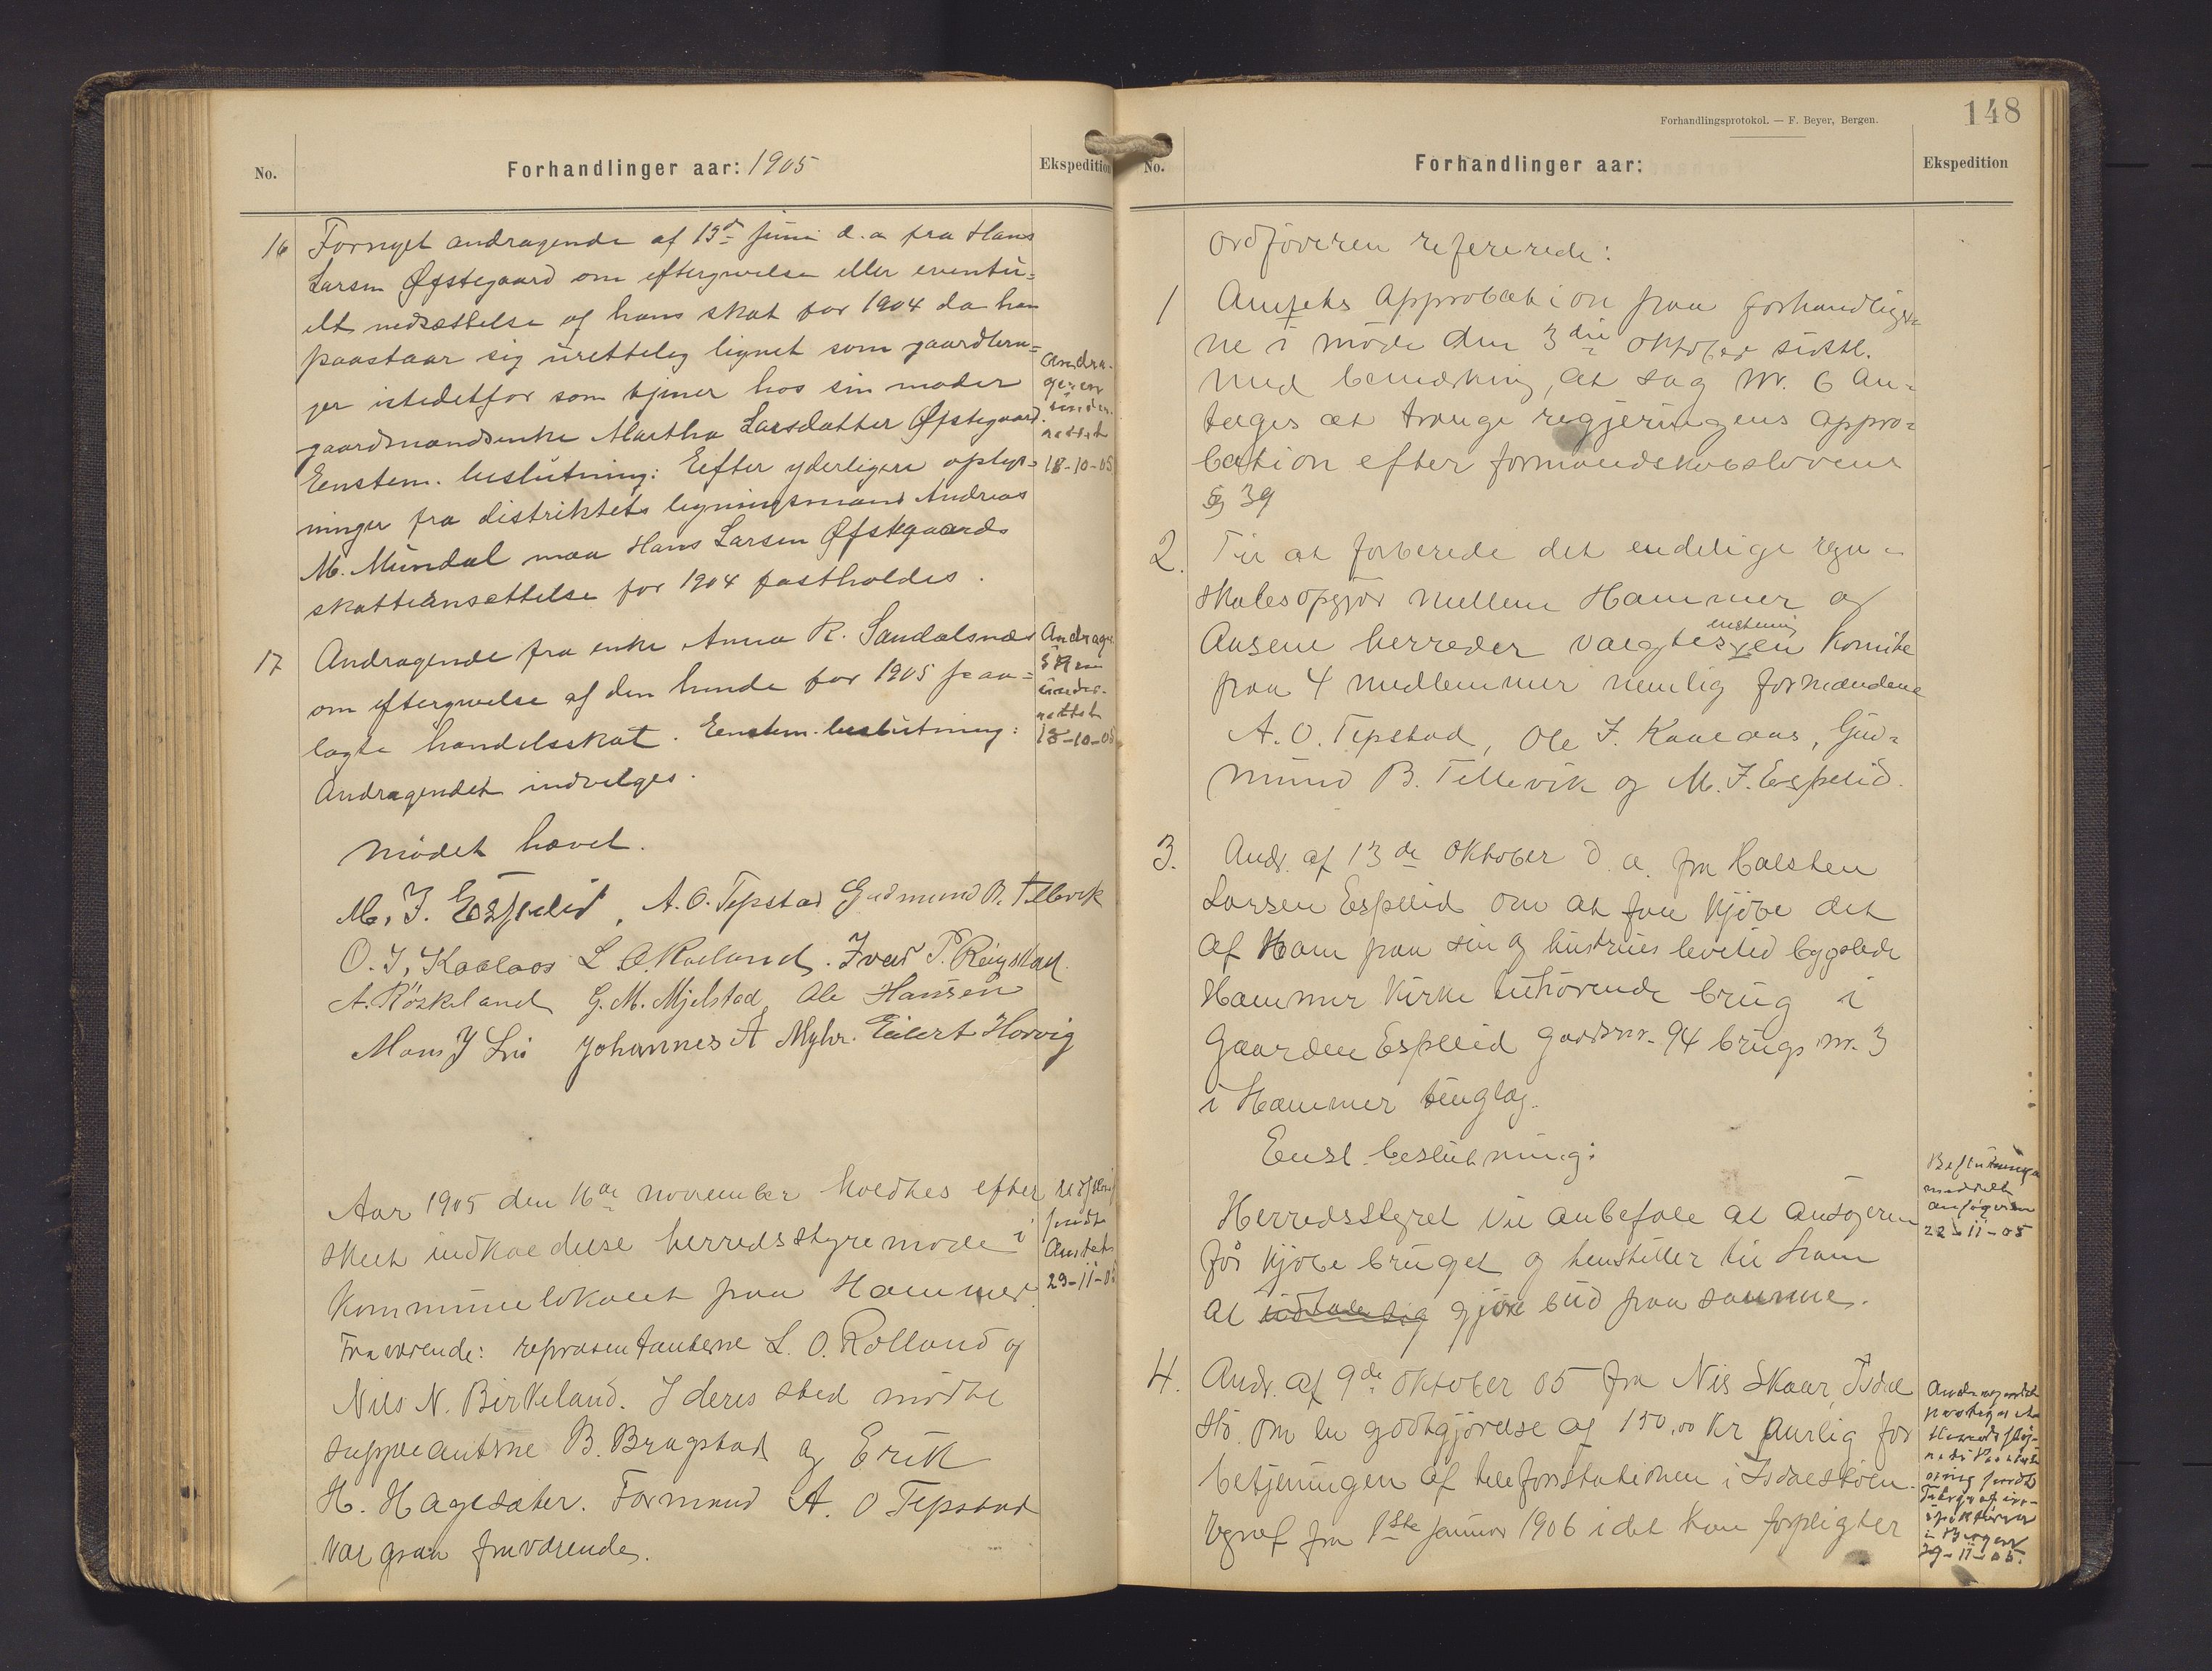 No.
Forhandlinger aar: 1905
Ekspedition
16 Fornyet andragende af 15de juni d.a fra Hans
Larsen Øfstegaard om eftergivelse eller eventu=
elt nedsættelse af hans skat for 1904 da han
paastaar sig urettelig lignet som gaardbru=
ger istedetfor som tjener hos sin moder
gaardmandsenke Martha Larsdatter Øfstegaard.
Enstem. beslutning: Eefter yderligere oplys=
ninger fra distriktets ligningsmand Andreas
M. Mundal maa Hans Larsen Øfstegaards
skatteansættelse for 1904 fastholdes.
Andra-
geren
under-
rettet
18-10-05
17 Andragende fra enke Anna R. Sandalsnæs
om eftergivelse af den hende for 1905 paa=
lagte handelsskat. Eenstem. beslutning:
Andragendet indvilges.
Andrage-
under-
rettet
18-10-05
Mødet hævet.
M. J. Espelid, A. O. Tepstad Gudmund B. Tellevik
O. J. Kaalaas L. O. Rolland. Ivar P. Reigstad.
A. Röskeland G. M. Mjelstad, Ole Hansen
Mons J Lie Johannes A Myhr. Eilert Horvig
Aar 1905 den 16de november holdtes efter
skeet indkaldelse herredsstyremøde i
kommunelokalet paa Hammer.
Fraværende: repræsentanterne L. O. Rolland og
Nils N. Birkeland. I deres sted mødte
suppleanterne B. Bragstad og Erik
H. Hagesæter. Formand A. O Tepstad
var ogsaa fraværende.
Udskrift
sendt
Amtet
29-11-05
148
Forhandlingsprotokol. — F. Beyer, Bergen.
No.
Forhandlinger aar:
Ekspedition
Ordføreren refererede:
1 Amtets Approbation paa forhandlinger=
ne i møde den 3die oktober sidstl.
med bemærkning, at sag nr. 6 an=
tages at trænge regjeringens appro=
bation efter formandskabslovens
§ 39
2. Til at forberede det endelige regn=
skabsopgjør mellem Hammer og
Aasene herreder valgtes enstemmig en komite
paa 4 medlemmer nemlig formændene
A. O. Tepstad, Ole J. Kaalaas, Gud=
mund B. Tellevik og M. J. Espelid.
3. Andr. af 13de oktober d. a. fra Halsten
Larsen Espelid om at faa kjøbe det
af Ham paa sin og hustrues levetid bygslede
Hammer Kirke tilhørende brug i
Gaarden Espelid Gaardsnr. 94 brugs nr. 3
i Hammer tinglag.
Eenst. beslutning:
Herredsstyret vil anbefale at ansøgeren
får kjøbe bruget og henstiller til ham
at udtale sig gjøre bud paa samme.
Beslutningen
meddelt
ansøgeren
22-11-05
4. Andr. af 9de oktober 05 fra Nils Skaar, Isdal
stö. om en godtgjørelse af 150,00 kr aarlig for
betjeningen af telefonstationen i Isdalstöen.
Egnaf fra 1ste januar 1906 idet han forpligter
Andragendet
29-11-05.